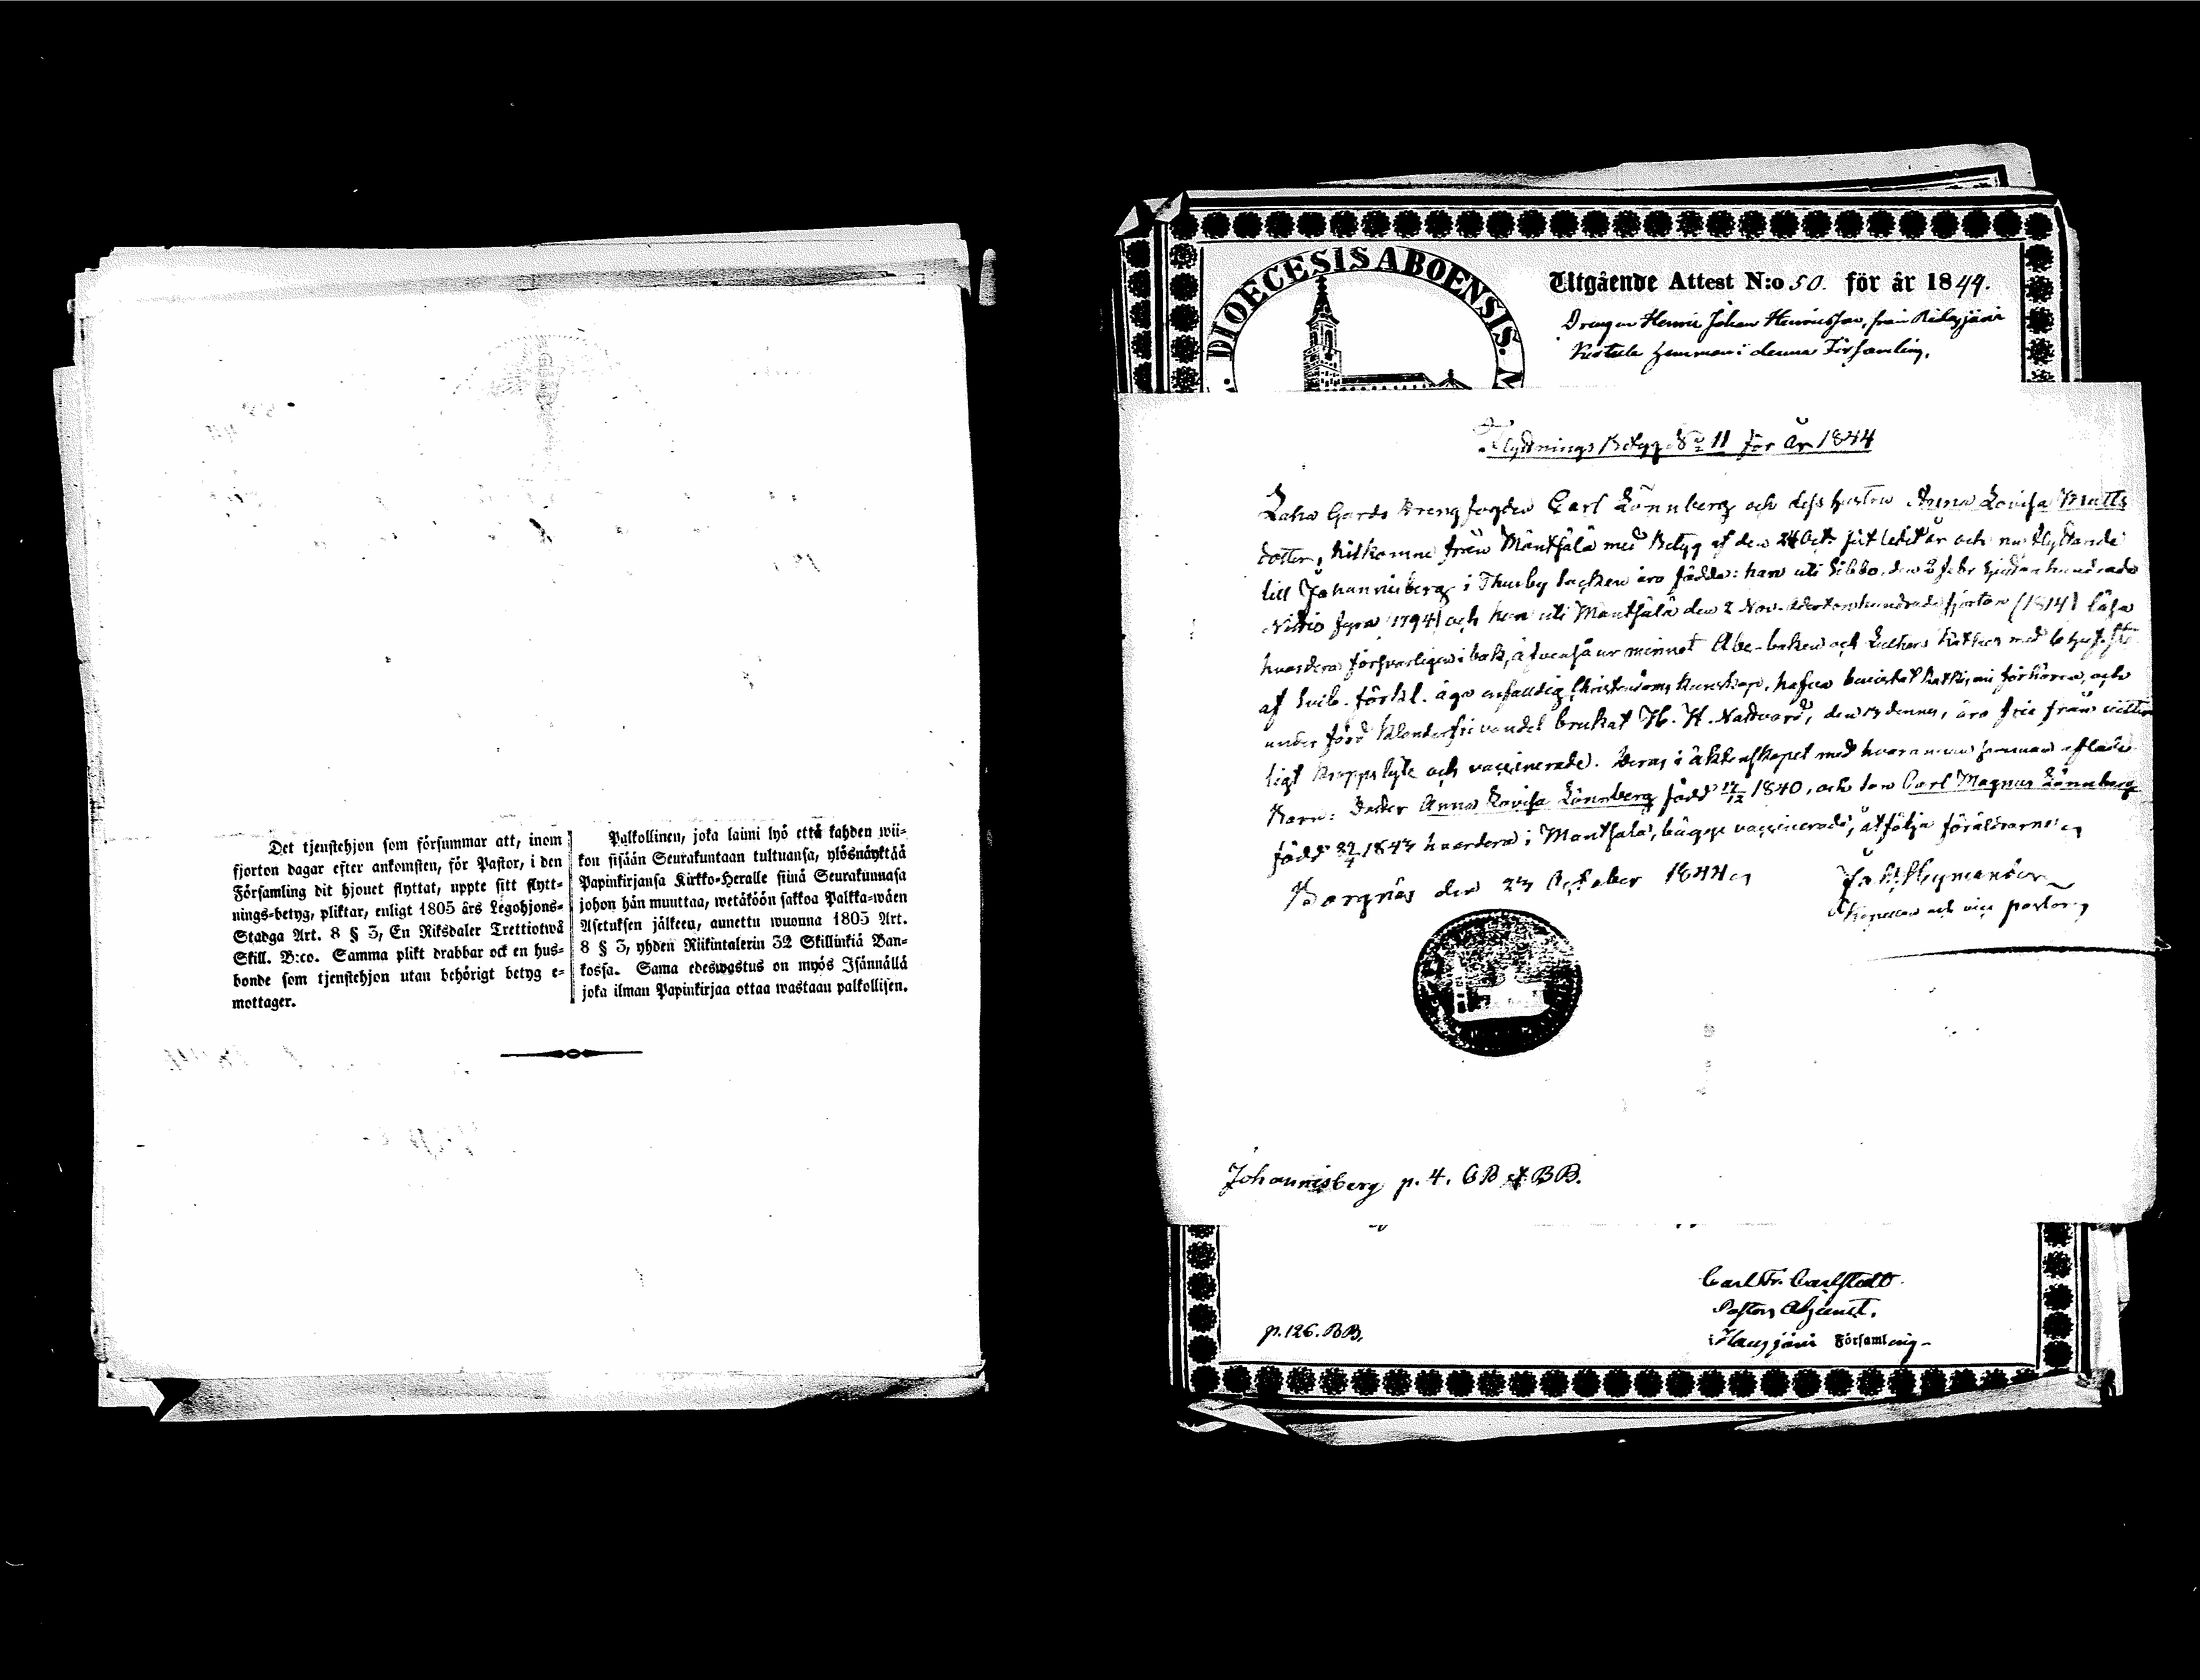 Det tjenstehjon som försummar att, inom
fjorton dagar efter ankomsten, för Pastor, i den
Församling dit hjonet flyttat, uppte sitt flytt-
nings-betyg, pliktar, enligt 1805 års Legohjons-
Stadga Art. 8 § 3, En Riksdaler Trettiotwå
Skill. B:co. Samma plikt drabbar ock en hus-
bonde som tjenstehjon utan behörigt betyg e-
mottager.
Palkollinen, joka laimi lyö että kahden wii-
kon sisään Seurakuntaan tultuansa, ylösnäyttää
Papinkirjansa Kirkko-Heralle siinä Seurakunnasa
johon hän muuttaa, wetäköön sakkoa Palkka-wäen
Asetuksen jälkeen, annettu wuonna 1805 Art.
8 § 3, yhden Riikintalerin 32 Skillinkiä Ban-
kossa. Sama edeswastus on myös Isännällä
joka ilman Papinkirjaa ottaa wastaan palkollisen.
DIOECESIS ABOENSIS.
Utgående Attest N:o 50. för år 1844.
Drengen Henric Johan Henricsson, från
i denna Församling.
Flyttnings Betyg No 11 för År 1844
Gårds Drengfogden Carl Lönnberg och dess hustru Anna Lovisa Matts
dotter, hitkomne från Mäntsälä med Betyg af den 24 Oct. och nu flyttande
till Johannisberg i Thusby Socken äro födde: han uti Sibbo den 2 Febr Sjuttonhundrade
Nittio fyra (1794) och hon uti Mäntsälä den 2 Nov. Adertonhundrade fjorton (1814) läsa
hvardera försvarligen i bok, äfvenså ur minnet Abc-boken och Luthers
af Svib. förkl. äga Christendoms kunskap, hafva bevistat och
under brukat H. H. Nattvard, den denna, äro frie från
ligt kroppslyte och vaccinerade. Deras i äktenskapet med hvarannan aflade
Barn: Dotter Anna Lovisa Lönnberg född 17/12 1840, och son Carl Magnus Lönnberg
född 1843 hvardera i Mäntsälä, bägge vaccinerade, åtfölja föräldrarne
Borgnäs den 23 October 1844
Hymander
Kapellan och vice pastor
Johannisberg p. 4. CB et BB.
Carl Fr. Carlstedt
Pastors Adjunct.
i Hausjärvi Församling
p. 126. BB.